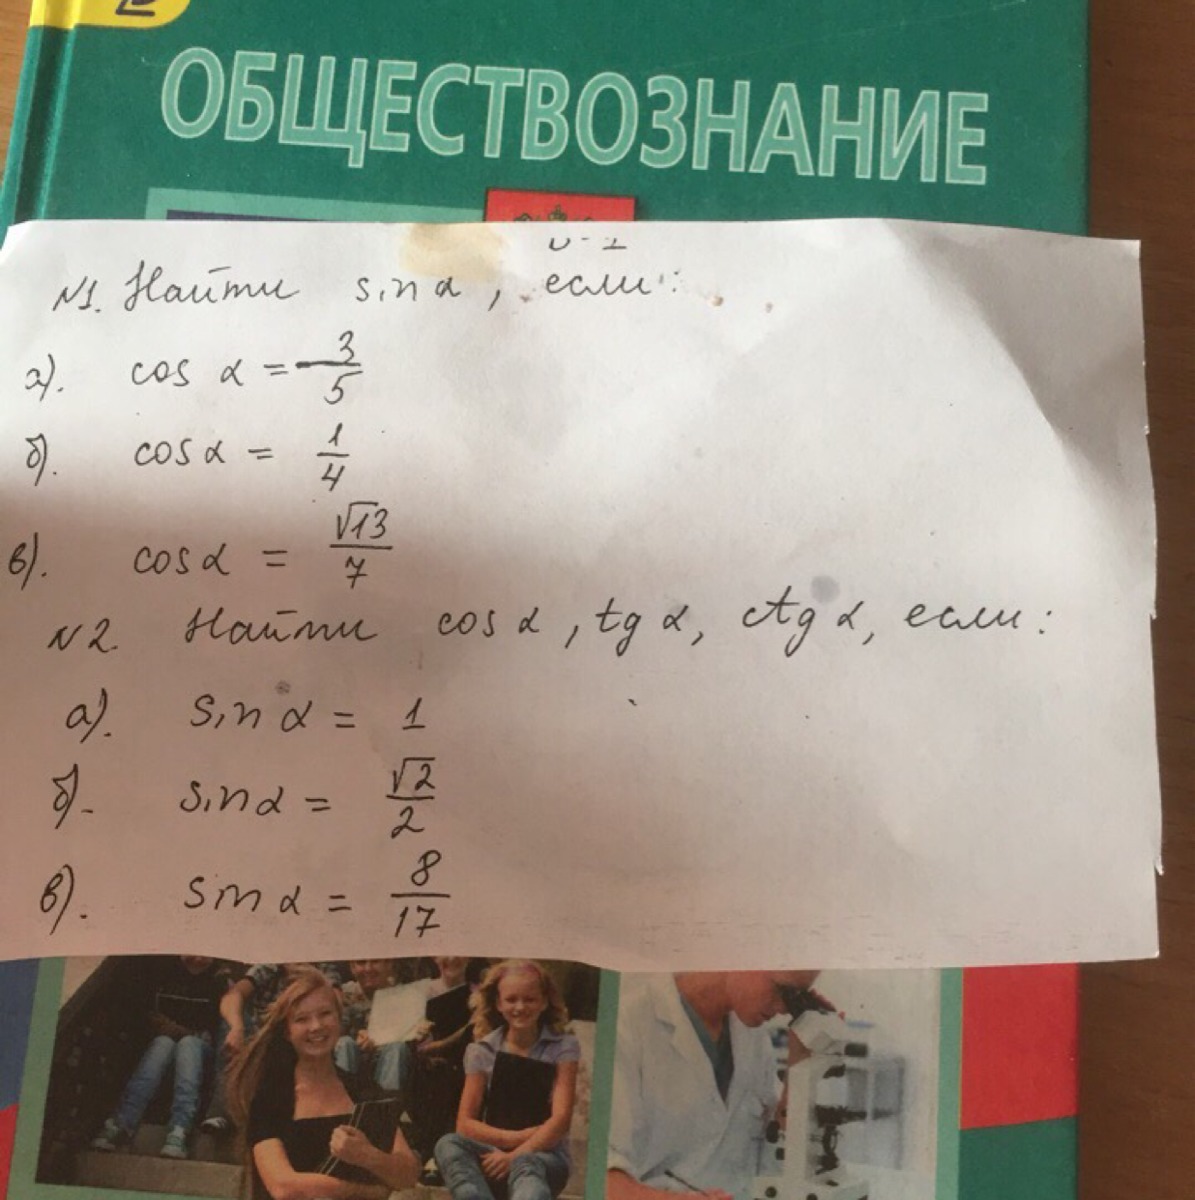 ОБЩЕСТВОЗНАНИЕ
N1. Найти sin α, если:
а). cos α = -3/5
б). cos α = 1/4
в). cos α = √13/7
N2. Найти cos α, tg α, ctg α, если:
а). sin α = 1
б). sin α = √2/2
в). sin α = 8/17